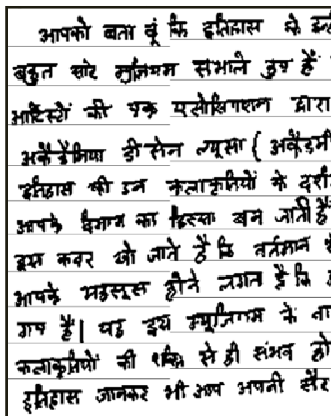 आपको बता दूं कि इतिहास के इन
बहुत सारे म्युजियम संभाले हुए हैं
आर्टिस्टों की एक एसोसिएशन द्वारा
अकैडेमिया डी सेन ल्यूसा ( अकैडमी
इतिहास की उन कलाकृतियों के
आपके दिमाग का हिस्सा बन जाती हैं
इस कदर खो जाते हैं कि वर्तमान
आपको महसूस होने लगता है कि
गए हैं| यह इस म्यूजियम के
कलाकृतियों की शक्ति से ही संभव हो
इतिहास जानकर भी आप अपनी सैर